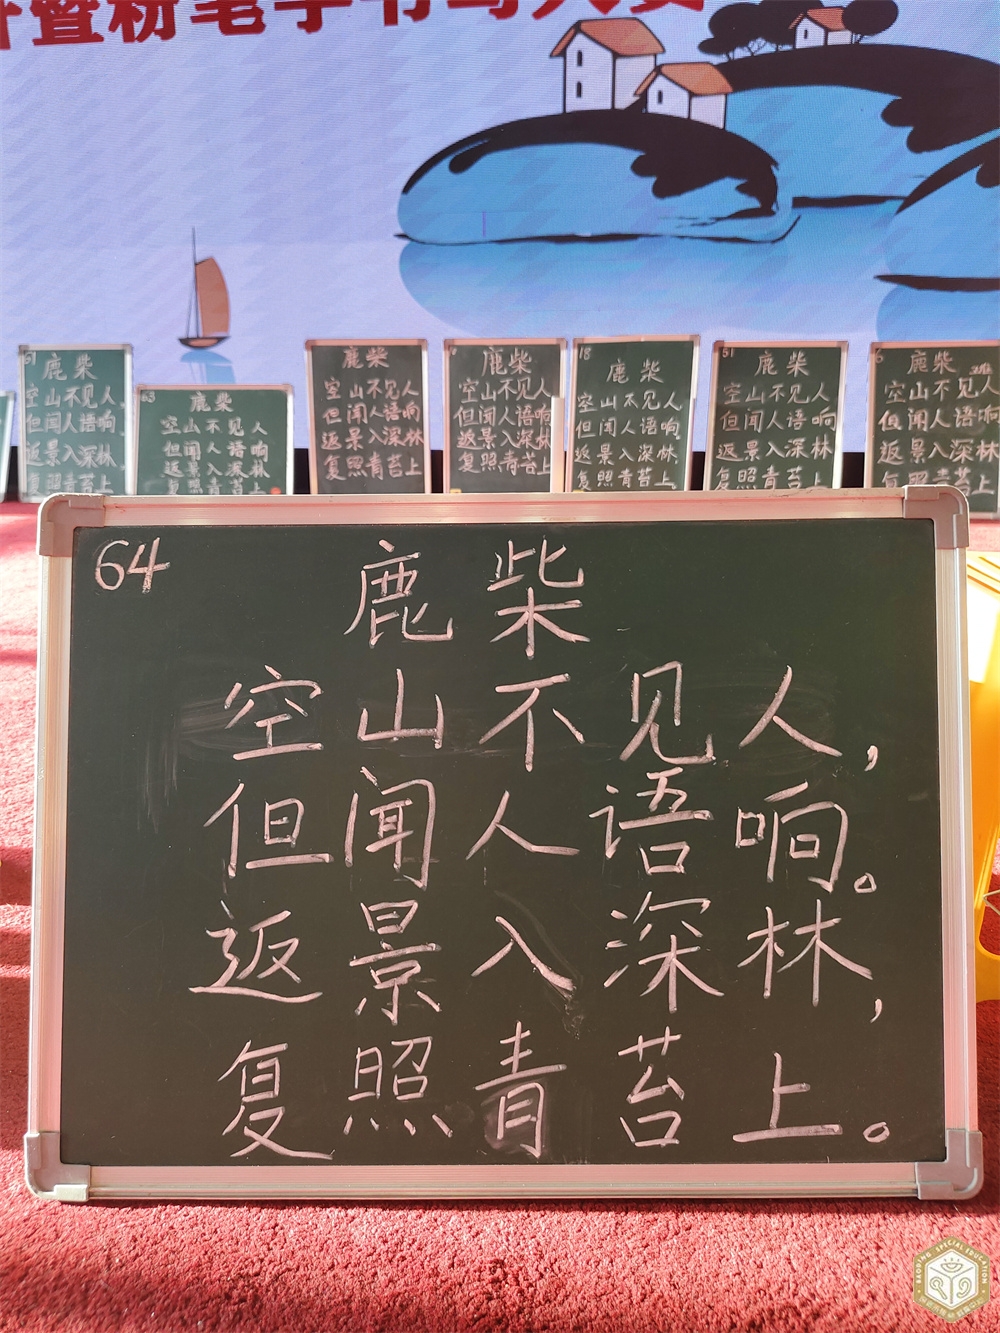 暨粉笔字书写大赛
61
鹿柴
空山不见人,
但闻人语响。
返景入深林,
复照青苔上。
63
鹿柴
空山不见人
但闻人语响
返景入深林
复照青苔上
鹿柴
空山不见人
但闻人语响
返景入深林
复照青苔上
鹿柴
空山不见人
但闻人语响
返景入深林
复照青苔上
18
鹿柴
空山不见人,
但闻人语响。
返景入深林
复照青苔上
51
鹿柴
空山不见人
但闻人语响
返景入深林
复照青苔上
鹿柴
空山不见人
但闻人语响
返景入深林
复照青苔上
64
鹿柴
空山不见人,
但闻人语响。
返景入深林,
复照青苔上。
BAODING SPECIAL EDUCATION